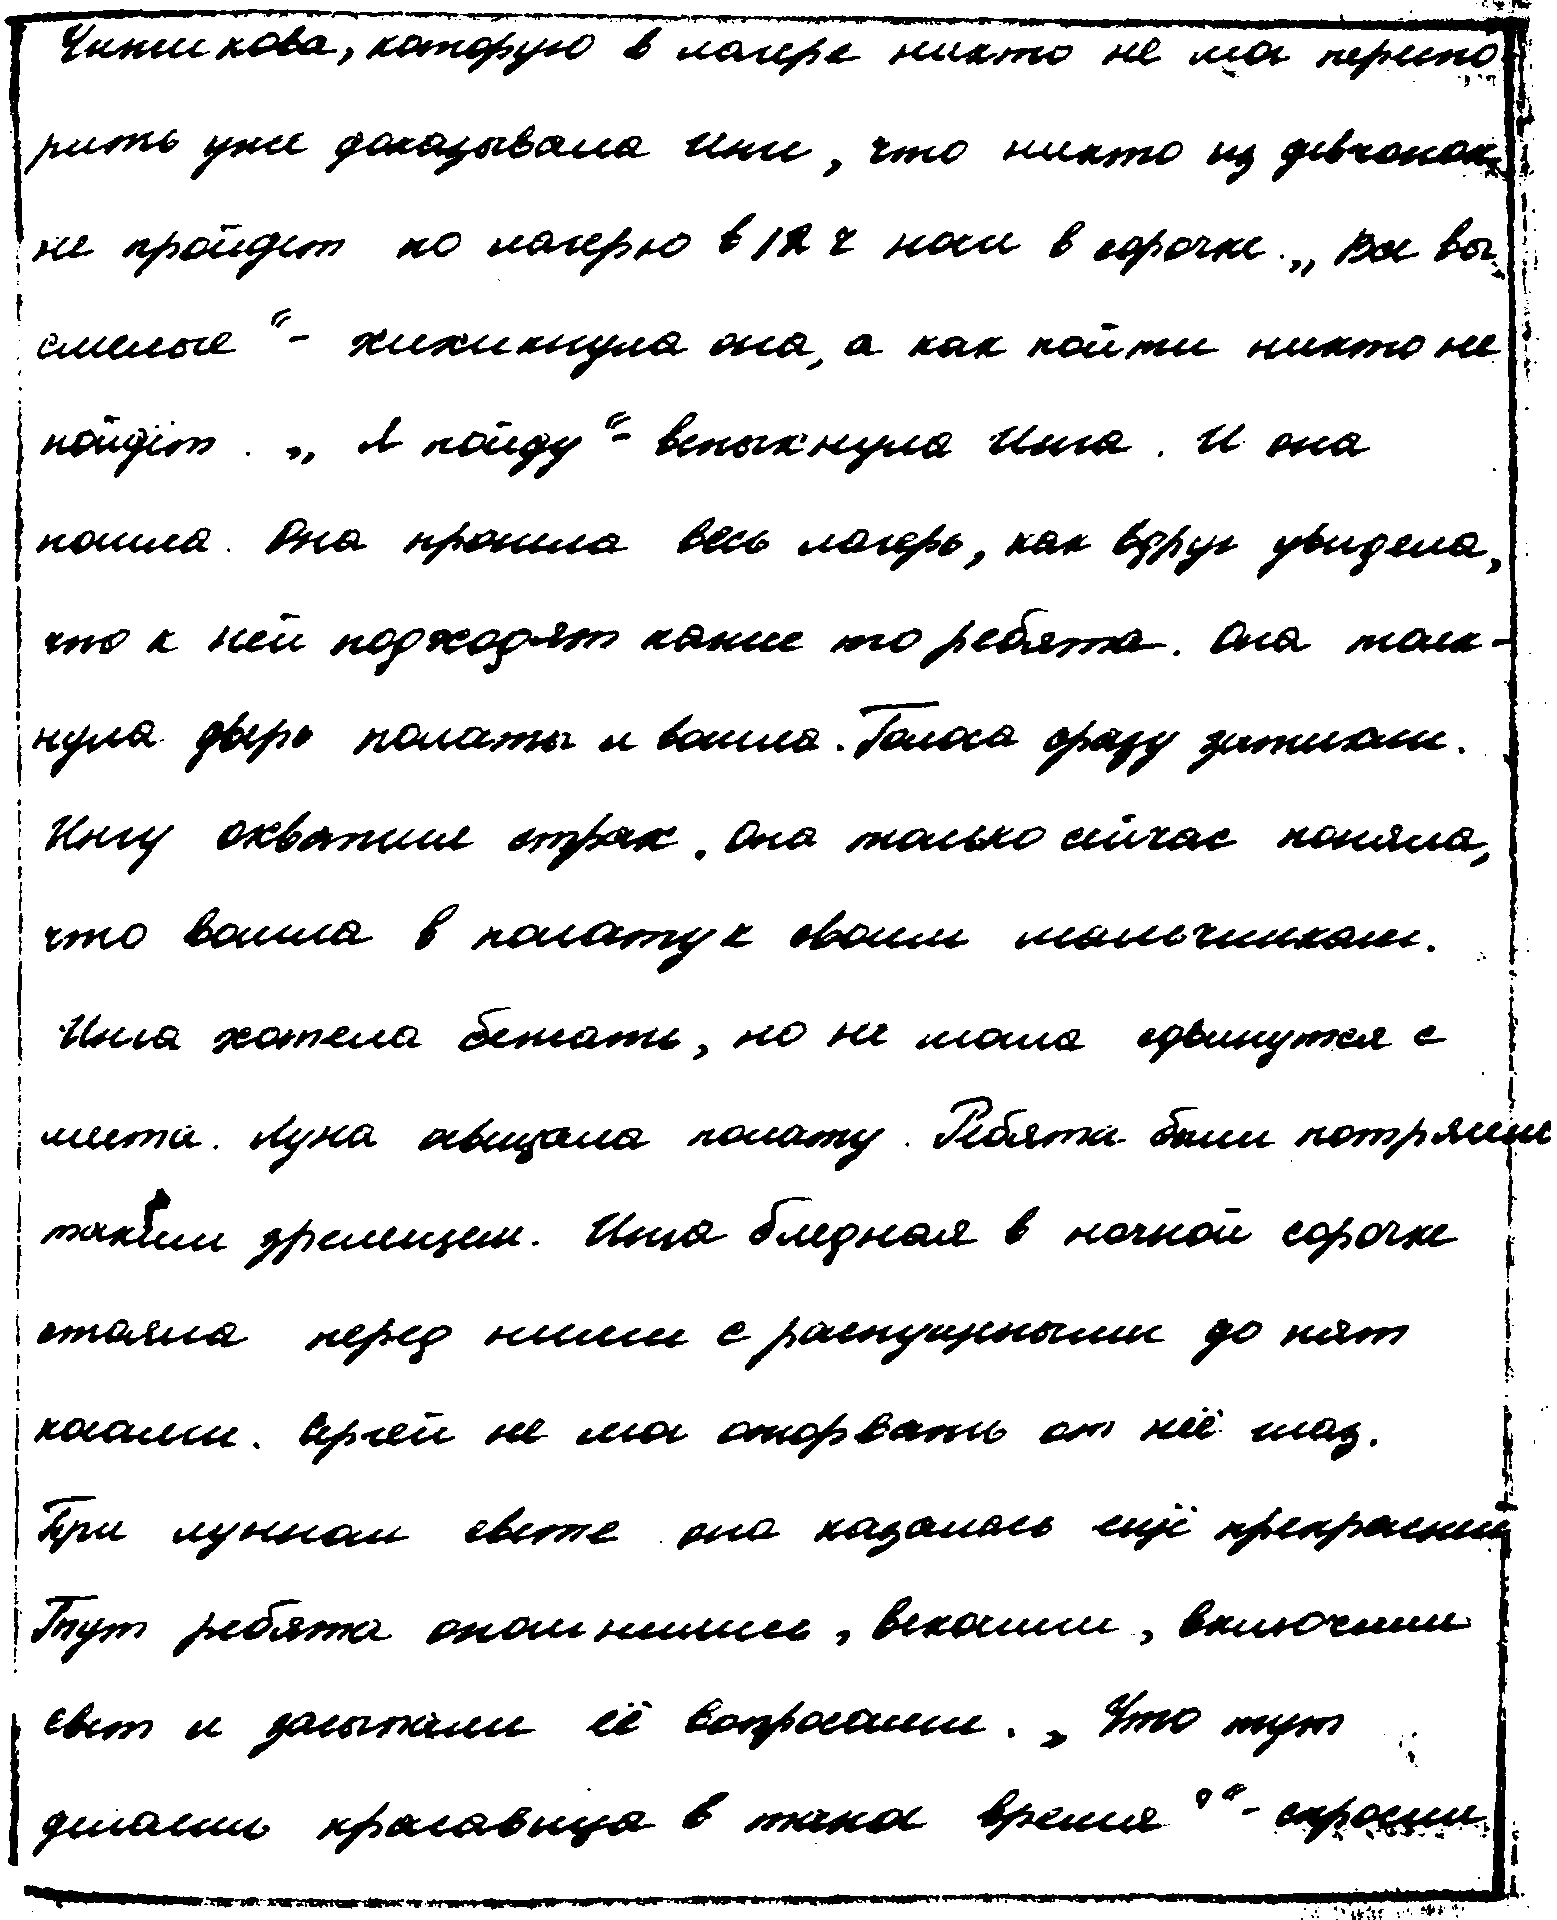 Чижикова, которую в лагере никто не мог переспо
рить уже доказывала Инге, что никто из девчонок
не пройдет по лагерю в 12 ч ночи в сорочке. „Все вы
смелые“- хихикнула она, а как пойти никто не
пойдёт. „Я пойду“- вспыхнула Инга. И она
пошла. Она прошла весь лагерь, как вдруг увидела,
что к ней подходят какие то ребята. Она толк-
нула дверь палаты и вошла. Голоса сразу затихли.
Ингу охватил страх. Она только сейчас поняла,
что вошла в палату к своим мальчишкам.
Инга хотела бежать, но не могла сдвинутся с
места. Луна освещала палату. Ребята были потрясены
таким зрелещем. Инга бледная в ночной сорочке
стояла перед ними с распущеными до пят
косами. Сергей не мог оторвать от неё глаз.
При лунном свете она казалась ещё прекрасней
Тут ребята опомнились, вскочили, включили
свет и засыпали её вопросами. „Что тут
делает красавица в такое время?“- спросил